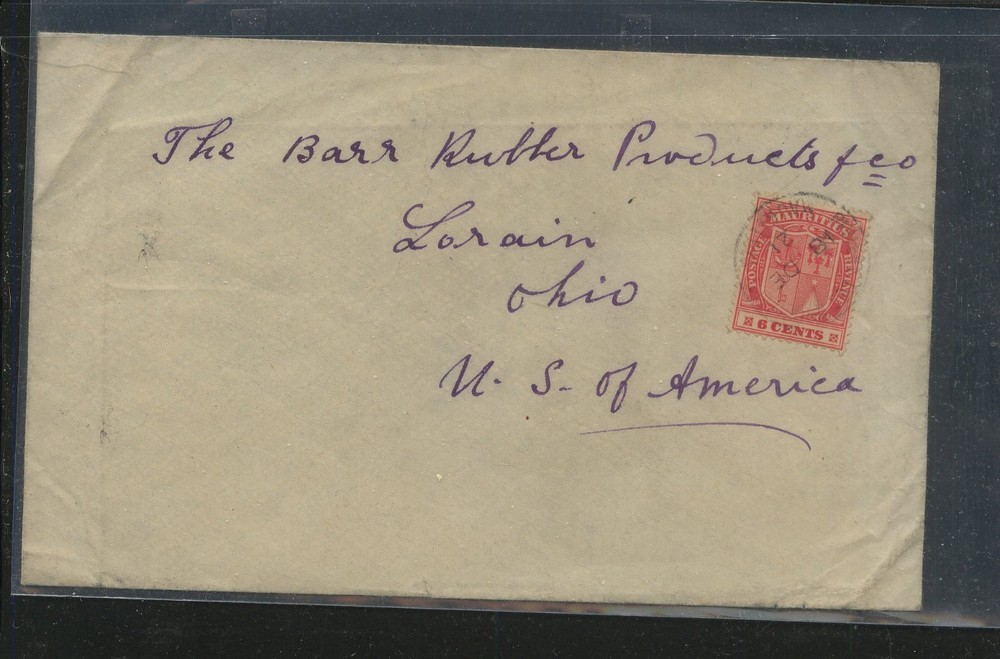 The Barr Rubber Products & co
Lorain
Ohio
U. S. of America
MAURITIUS
POSTAGE
REVENUE
6 CENTS